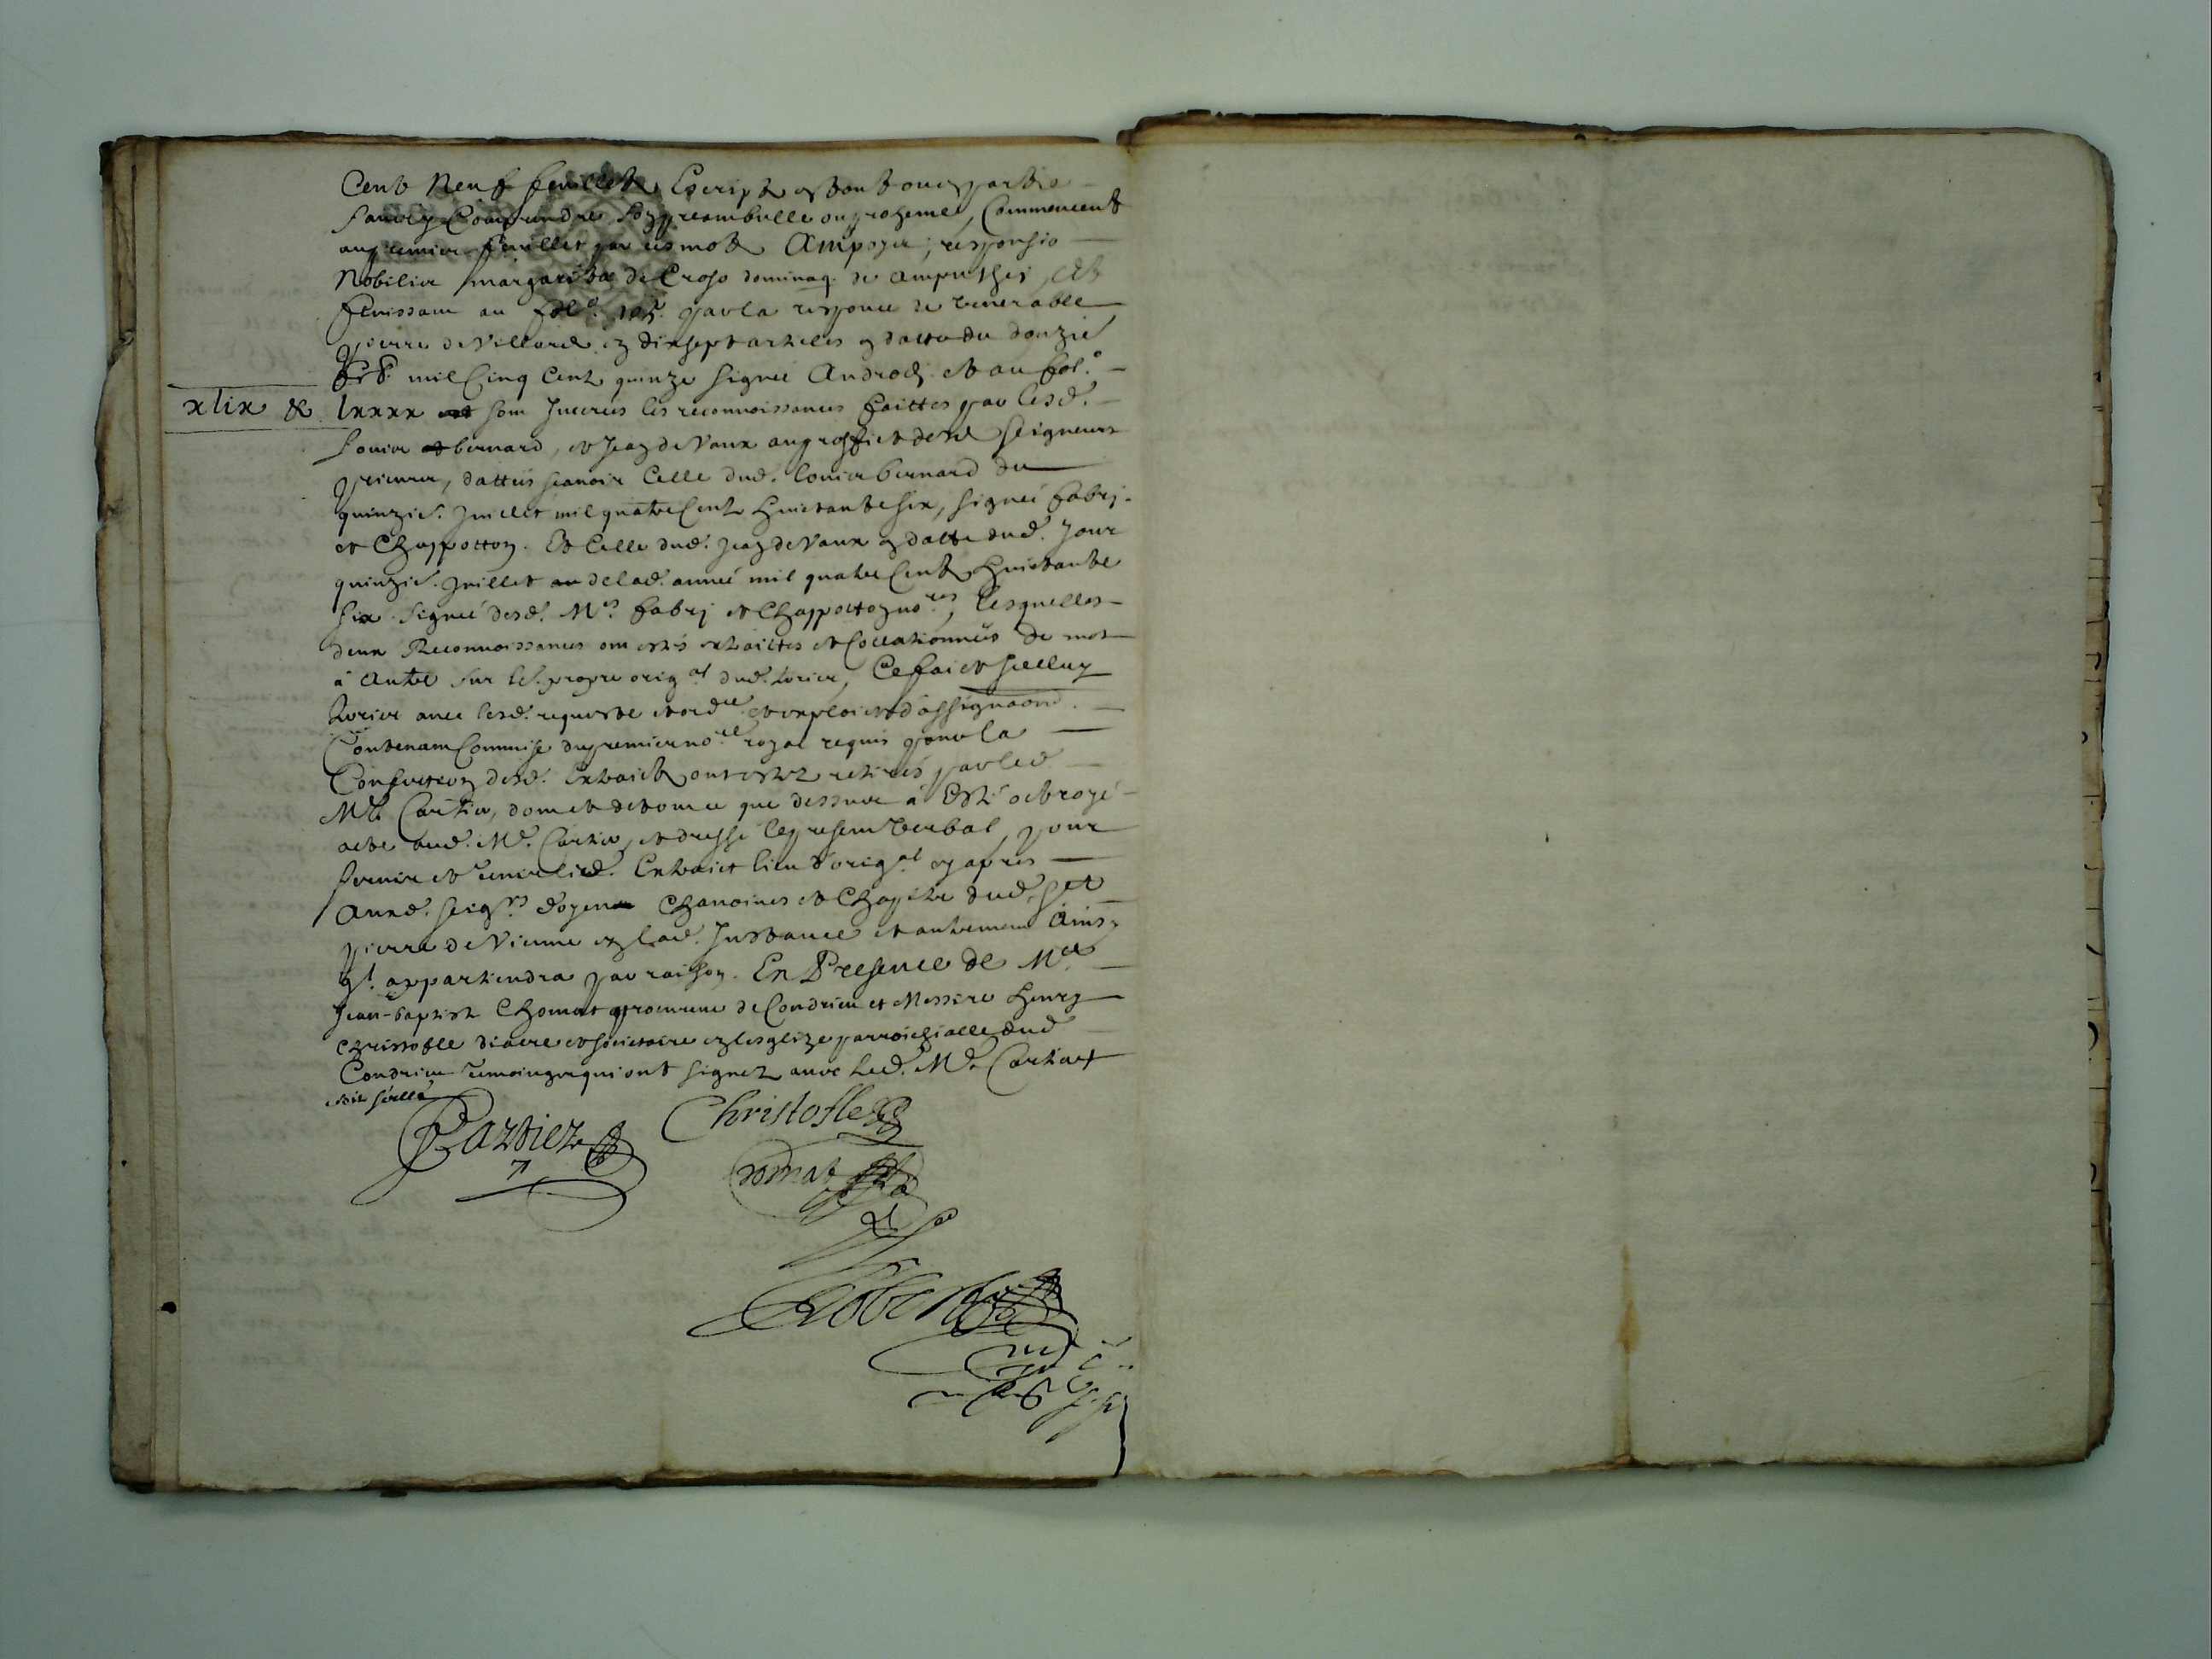 Cent Neuf feuillets Escripts en tout ou en partie
sans y Comprendre son preambulle ou proheme, Commencent
au premier feuillet par ces mots Ampoys; responsio
Nobilis margaritæ de Croso dominaq. de amputhei, Et
finissant au fol.º 105. par la responce de venerable
pierre de Villard en dixsept articles en datte du douzie
mil Cinq Cent quinze signée Androdi et au fol.º
xlix & lxxxx sont Inserés les reconnoissances faittes par lesd.
Louis bernard, et Jean de Vaux au proffict desd. seigneurs
prieurs, dattés scavoir Celle dud. Louis bernard du
quinzie. Juillet mil quatre Cent huictante six, signée fabrj
et Chappotton. Et Celle dud. Jean de Vaux en datte dud. Jour
quinzie. Juillet de lad. année mil quatre Cent huictante
six signée desd. Mes. fabrj et Chappotton nores, lesquelles
deux Reconnoissances ont estés extraittes et Collationnées de mot
à Autre sur le propre origal dud. terrier, Ce faict Icelluy
terrier avec lesd. requeste et ordce et exploict d'assignaon.
Contenant Commise du premier nore royal requis pour la
Confection desd. Extraicts ont estez retirés par led
Me Cartier, dont et de tout ce que dessus à Esté octroyé
acte aud. Me. Cartier, et dressé le present verbal, pour
servir et tenir lesd. Extraict lieu d'origal cy apres
Auxd. seigrs doyen Chanoines et Chapitre dud. St
pierre de Vienne en lad. Instance et autrement Ainsy
ql. appartiendra par raison. En Presence de Me
Jean-baptiste Chomat procureur de Condrieu et Messire henry
christofle diacre et societaire en lesglize parroichialle dud
Condrieu temoings qui ont signez avec led. Me Cartier
soit scellé
Cartier
Christofle
Chomat
Robert